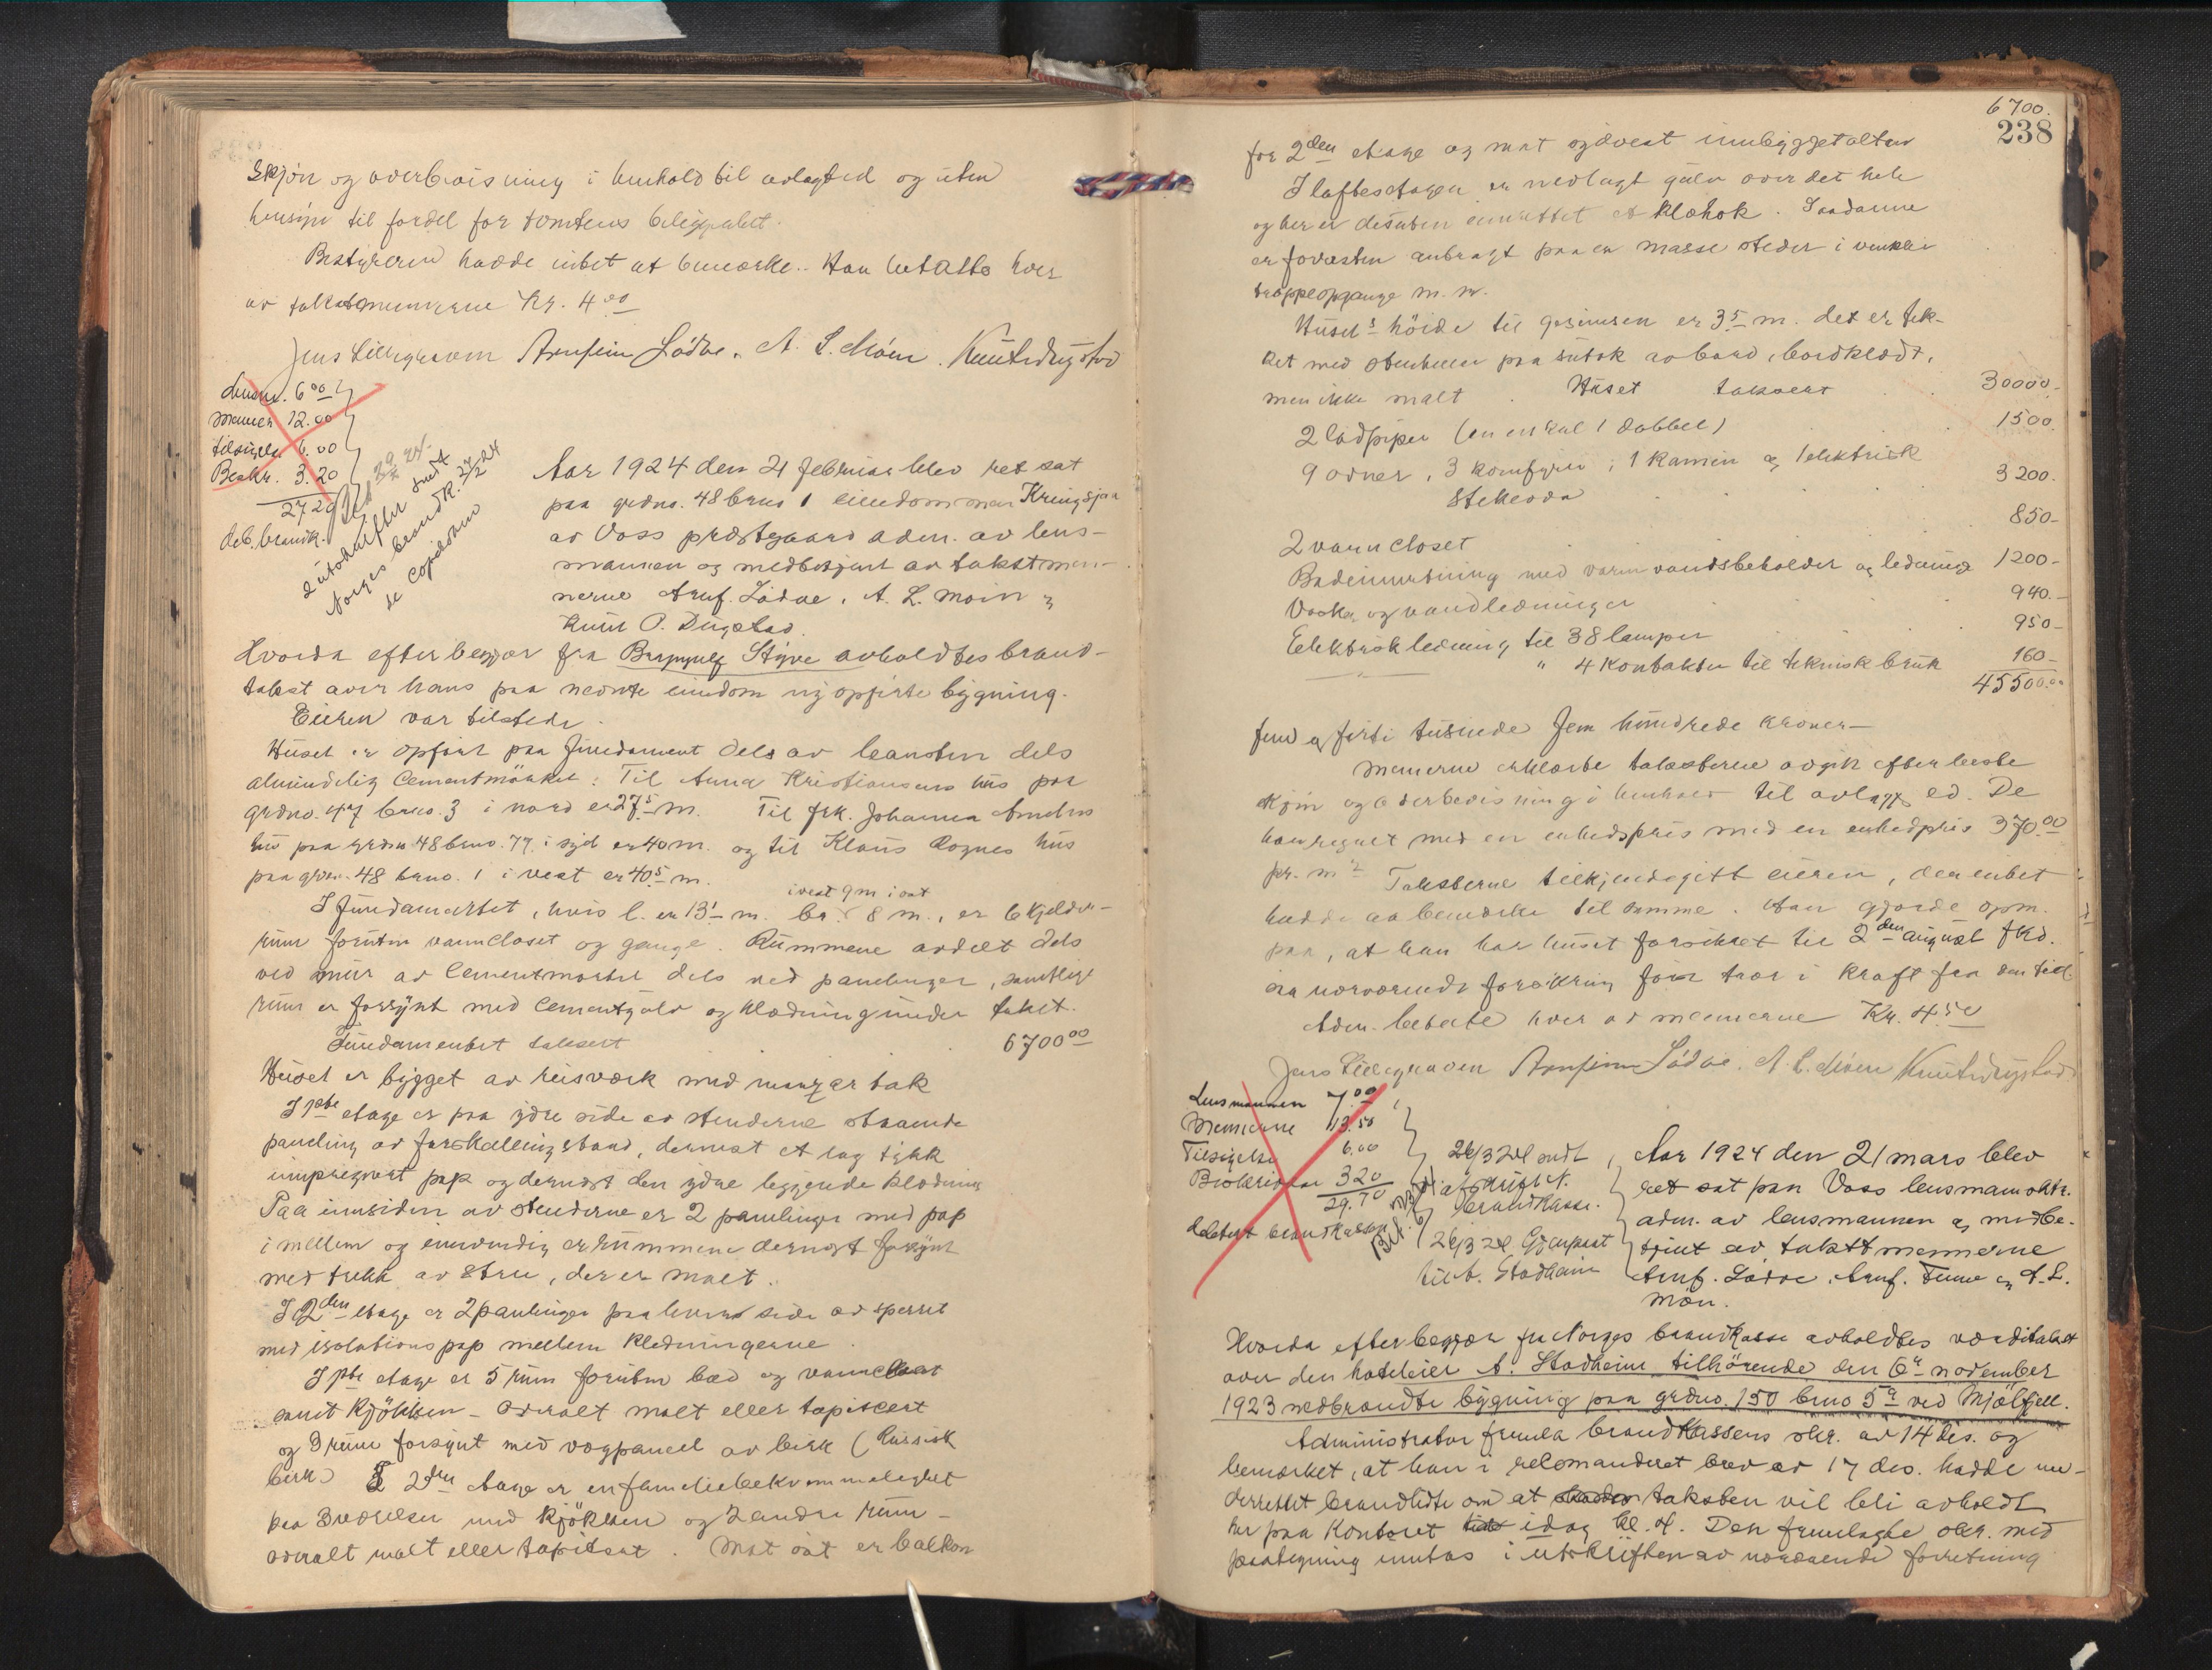 Skjön og overbevisning i henhold til avlagt ed og uten
hensyn til fordel for tomtens beliggenhet.
Bestyreren hadde intet at bemerke. Han betalte hver
av takstmennerne Kr. 4.00
Jens Lillegraven Arnfinn Lödve. A. L. Móen. Knut Dugstad
Lensm. 6.00
Mennen 12.00
tilsigelse 6.00
Beskr. 3.20
27.20
deb. brandk.
2 utskrifter sendt
Norges brandk. 27/2 24
Aar 1924 den 21 februar blev ret sat
paa grdno. 48 brno 1 eiendommen Kringsjaa
av Voss prestgaard adm. av lens-
mannen og medbetjent av takstmen-
nerne Arnf. Lödve, A. L. Moin og
Knut O. Dugstad.
Hvorda efter begjær fra Brynjulf Styve avholdtes brand-
takst over hans paa nevnte eiendom ny opførte bygning.
Eieren var tilstede.
Huset er opfört paa fundament dels av graasten dels
almindelig Cementmörtel. Til Anna Kristiansens hus paa
grdno. 47 brno. 3 i nord er 27.5 m. Til frk. Johanna
hus paa grdno 48 brno. 77 i syd er 40 m. og til Klaus Rognes hus
paa grdno. 48 brno. 1 i vest er 40.5 m.
i vest 9 m i öst
I fundamentet, hvis l. er 13.1 m. br. 8 m., er 6 kjelder-
rum foruten vanncloset og gange. Rummene avdelt dels
ved mur av Cementmörtel dels ved panelinger, samtlige
rum er forsynt med Cementgolv og klædning under taket.
Fundamentet taksert 6700.00
Huset er bygget av reisverk med tak
I 1ste etage er paa ydre side av stenderne staaende
paneling av forskallingsbord, dernest et lag tykk
impregnert pap og dernest den ydre liggende klædning
Paa innsiden av stenderne er 2 panelinger med pap
i mellem og innvendig er rummene dernest forsynt
med trekk av strie, der er malt.
I 2den etage er 2 panelinger paa hver side av sperret
med isolationspap mellem kledningerne.
I 1ste etage er 5 rum foruten bad og vanncloset
samt kjökken – overalt malt eller tapisert
og 3 rum forsynt med vegpanel av birk (Russisk
birk) I 2den etage er en familiebekvemmelighet
paa 3 værelser med kjökken og 2 andre rum –
overalt malt eller tapitsert. Mot öst er balkon
6700.
238
for 2den etage og mot sydvest innbygget altan
I loftsetagen er nedlagt gulv over det hele
og her er desuten innrettet et Klæhok. Saadanne
er foruten anbragt paa en masse steder i
trappeopgange m. m.
Husets höide til gesimsen er 3.5 m. det er tek-
ket med stenheller paa sutak av bord, bordklædt,
men ikke malt. Huset taksert 30000.-
2 ildpiper (en enkel 1 dobbel) 1500.
9 ovner, 3 komfyrer, 1 Kamin og 1 elektrisk
stekeovn 3200.
2 vanncloset 850-
Badeinnretning med varmvandsbeholder og ledninger 1200-
Vaske og vandledninger 940.-
Elektrisk ledning til 38 lamper 950-
" 4 kontakter til teknisk bruk 160-
45500.00
fem og forti tusinde fem hundrede kroner –
Mennerne erklærte taksterne avgit efter beste
skjön og overbevisning i henhold til avlagt ed. De
har regnet med en enhedspris med en enhedpris 370.00
pr. m2 Taksterne tilkjendegitt eieren, der intet
hadde at bemerke til samme. Han gjorde opm.
paa, at han har huset forsikret til 2den august fkd.
saa nærværende forsikring först trær i kraft fra den tid.
Adm. betalte hver av mennerne Kr. 4.50
Jens Lillegraven Arnfinn Lödve. A. L. Móen Knut Dugstad
Lensmannen 7.00
Mennerne 13.50
Tilsigelse 6.00
Beskrivelse 3.20
29.70
debitert brandkassen
26/3 24 sendt
afskrift N.
brandkasse.
26/3 24 Gjenpart
til A. Stadheim
Aar 1924 den 21 mars blev
ret sat paa Voss lensmannsktr.
adm. av lensmannen og medbe-
tjent av takstmennerne
Arnf. Lödve, Arnf. Finne og A. L.
Móen.
Hvorda efter begjær fra Norges brandkasse avholdtes værditakst
over den hoteleier A. Stadheim tilhörende den 6te november
1923 nedbrendte bygning paa grdno. 150 brno 5 ved Mjölfjell.
Administrator fremla brandkassens skr. av 14 des. og
bemerket, at han i rekomanderet brev av 17 des. hadde un-
derrettet brandlidte om at taksten vil bli avholdt
her paa Kontoret idag kl. 4. Den fremlagte skr. med
paategning inntas i utskriften av nærværende forretning